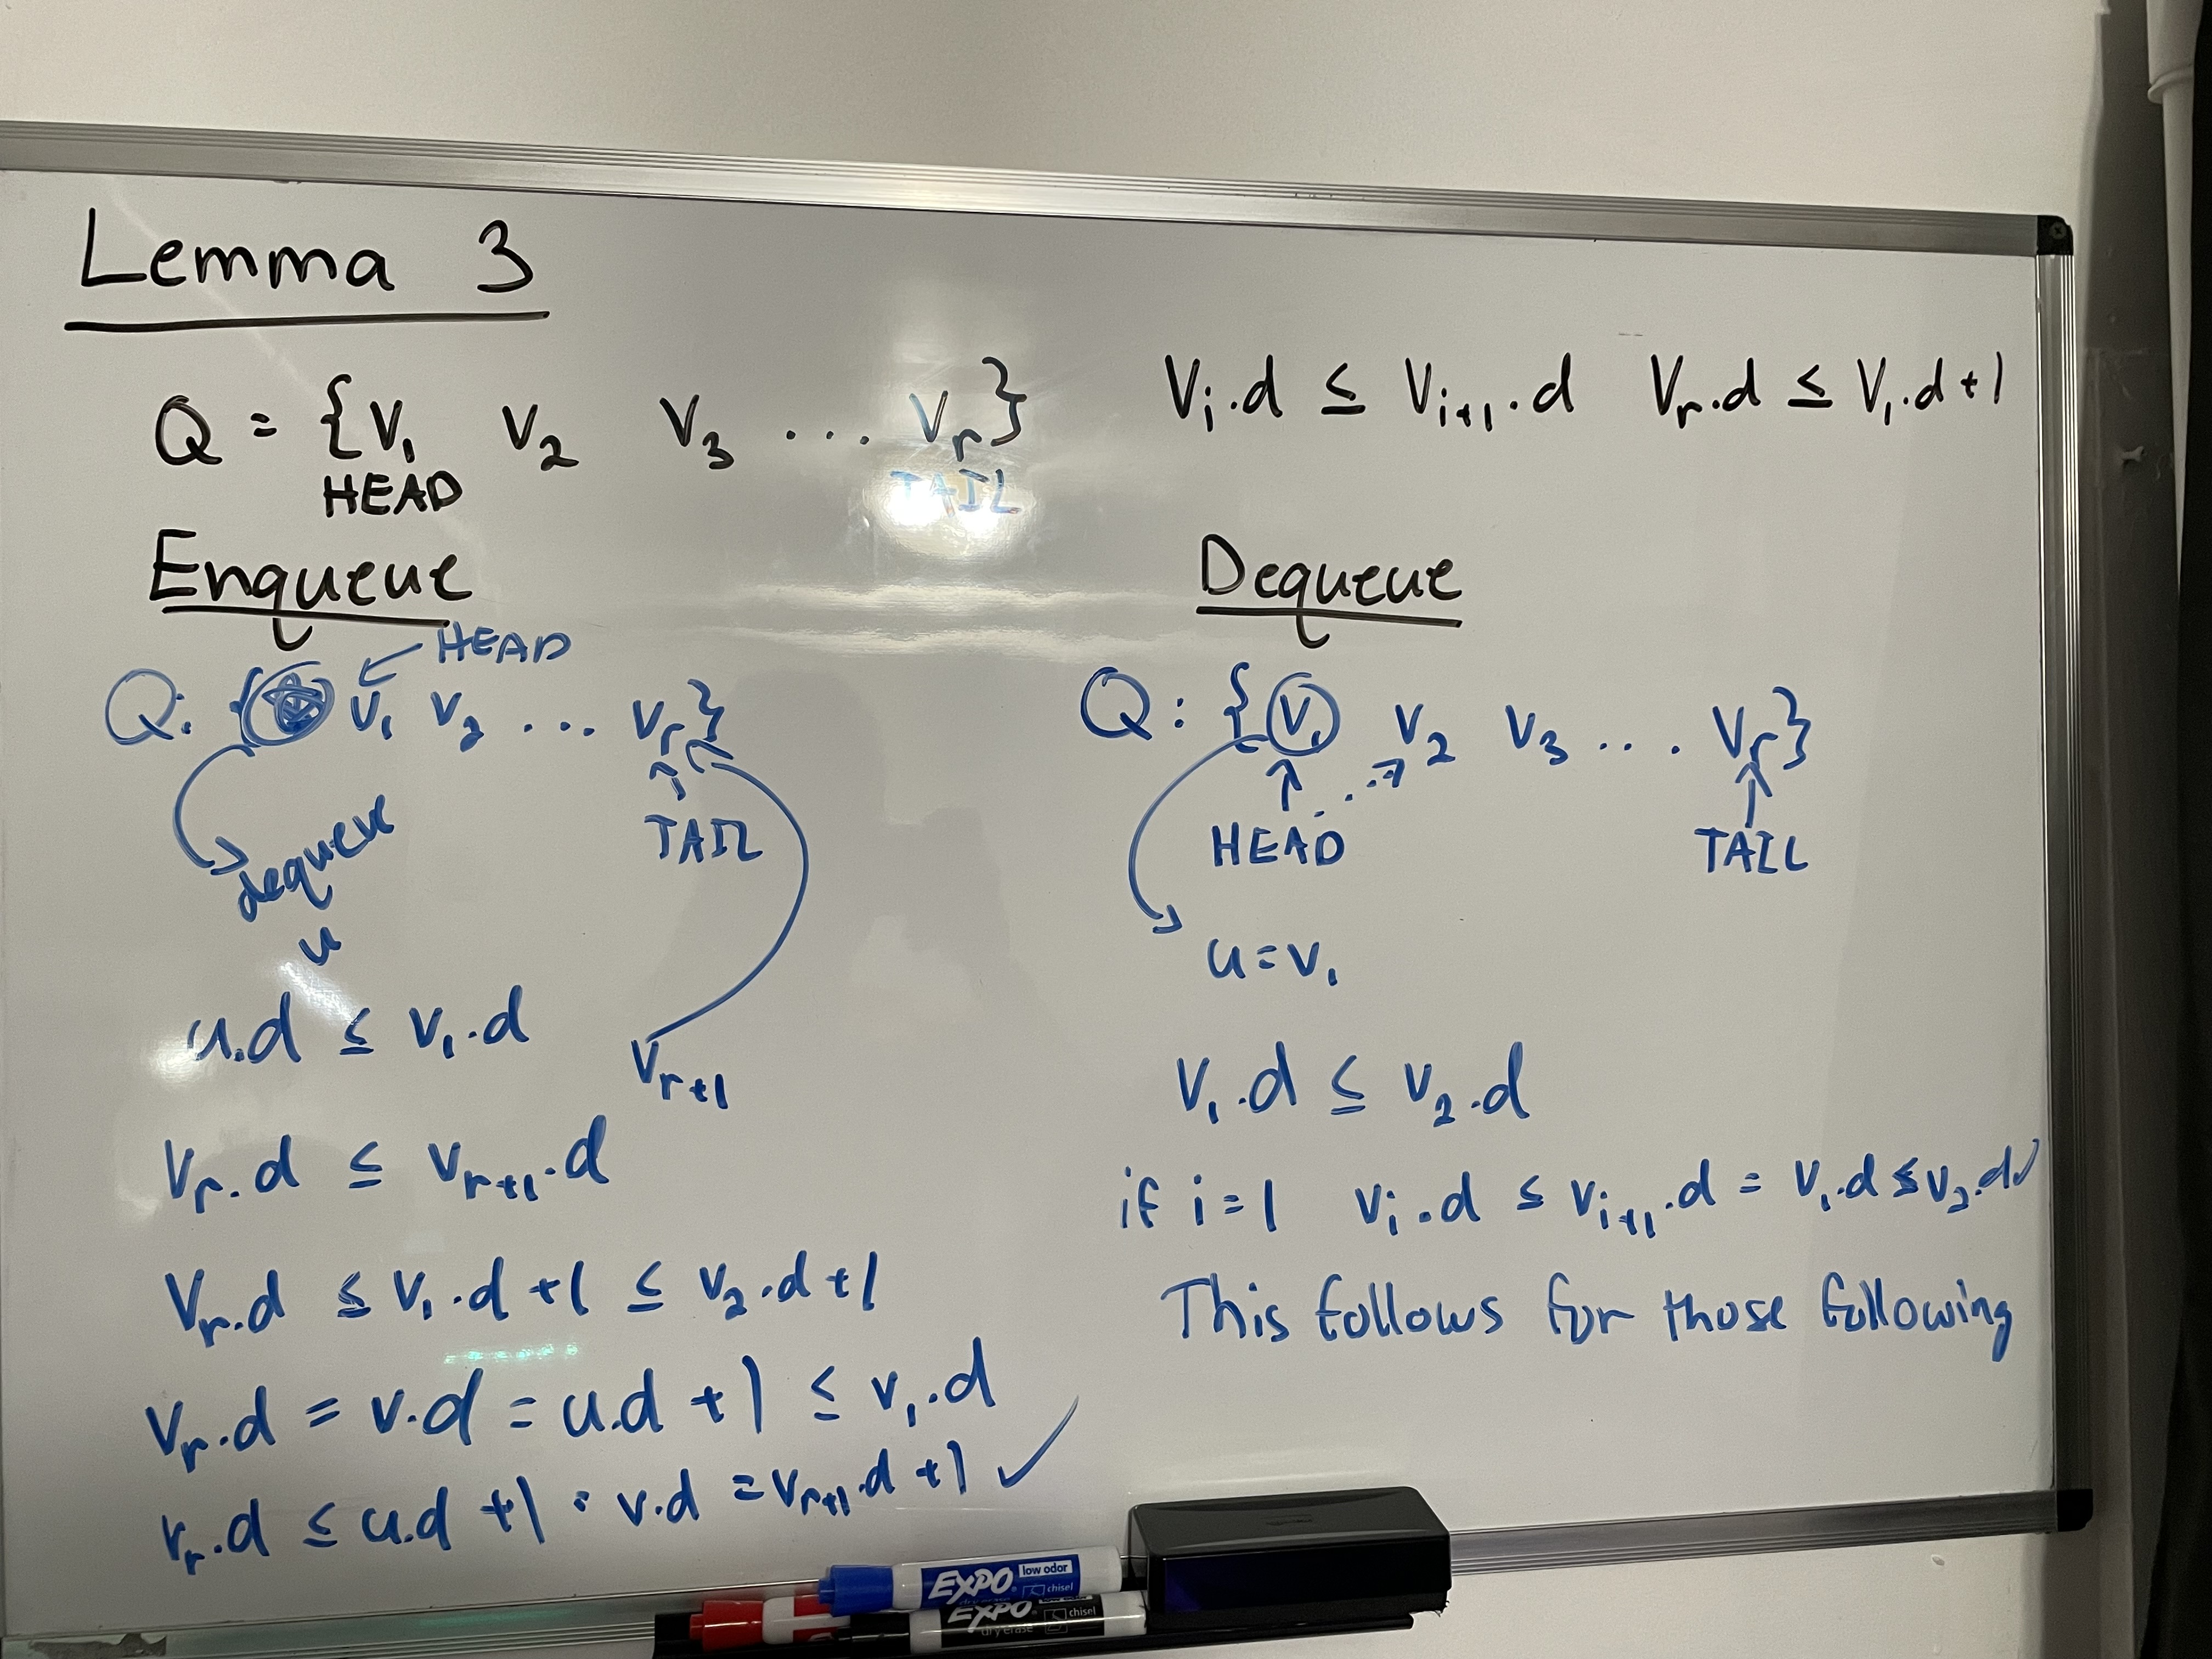 Lemma 3
Q = {V₁ V₂ V₃ ... Vᵣ}
HEAD TAIL
Vᵢ.d ≤ Vᵢ₊₁.d Vᵣ.d ≤ V₁.d+1
Enqueue
HEAD
Q: { V₁ V₂ ... Vᵣ}
TAIL
dequeue
u
Vᵣ₊₁
u.d ≤ V₁.d
Vᵣ.d ≤ Vᵣ₊₁.d
Vᵣ.d ≤ V₁.d +1 ≤ V₂.d+1
Vᵣ.d = v.d = u.d +1 ≤ V₁.d
Vᵣ.d ≤ u.d +1 = v.d = Vᵣ₊₁.d +1 ✓
Dequeue
Q: {V₁ V₂ V₃ ... Vᵣ}
HEAD TAIL
u = V₁
V₁.d ≤ V₂.d
if i=1 Vᵢ.d ≤ Vᵢ₊₁.d = V₁.d ≤ V₂.d ✓
This follows for those following
EXPO low odor chisel
EXPO dry erase chisel